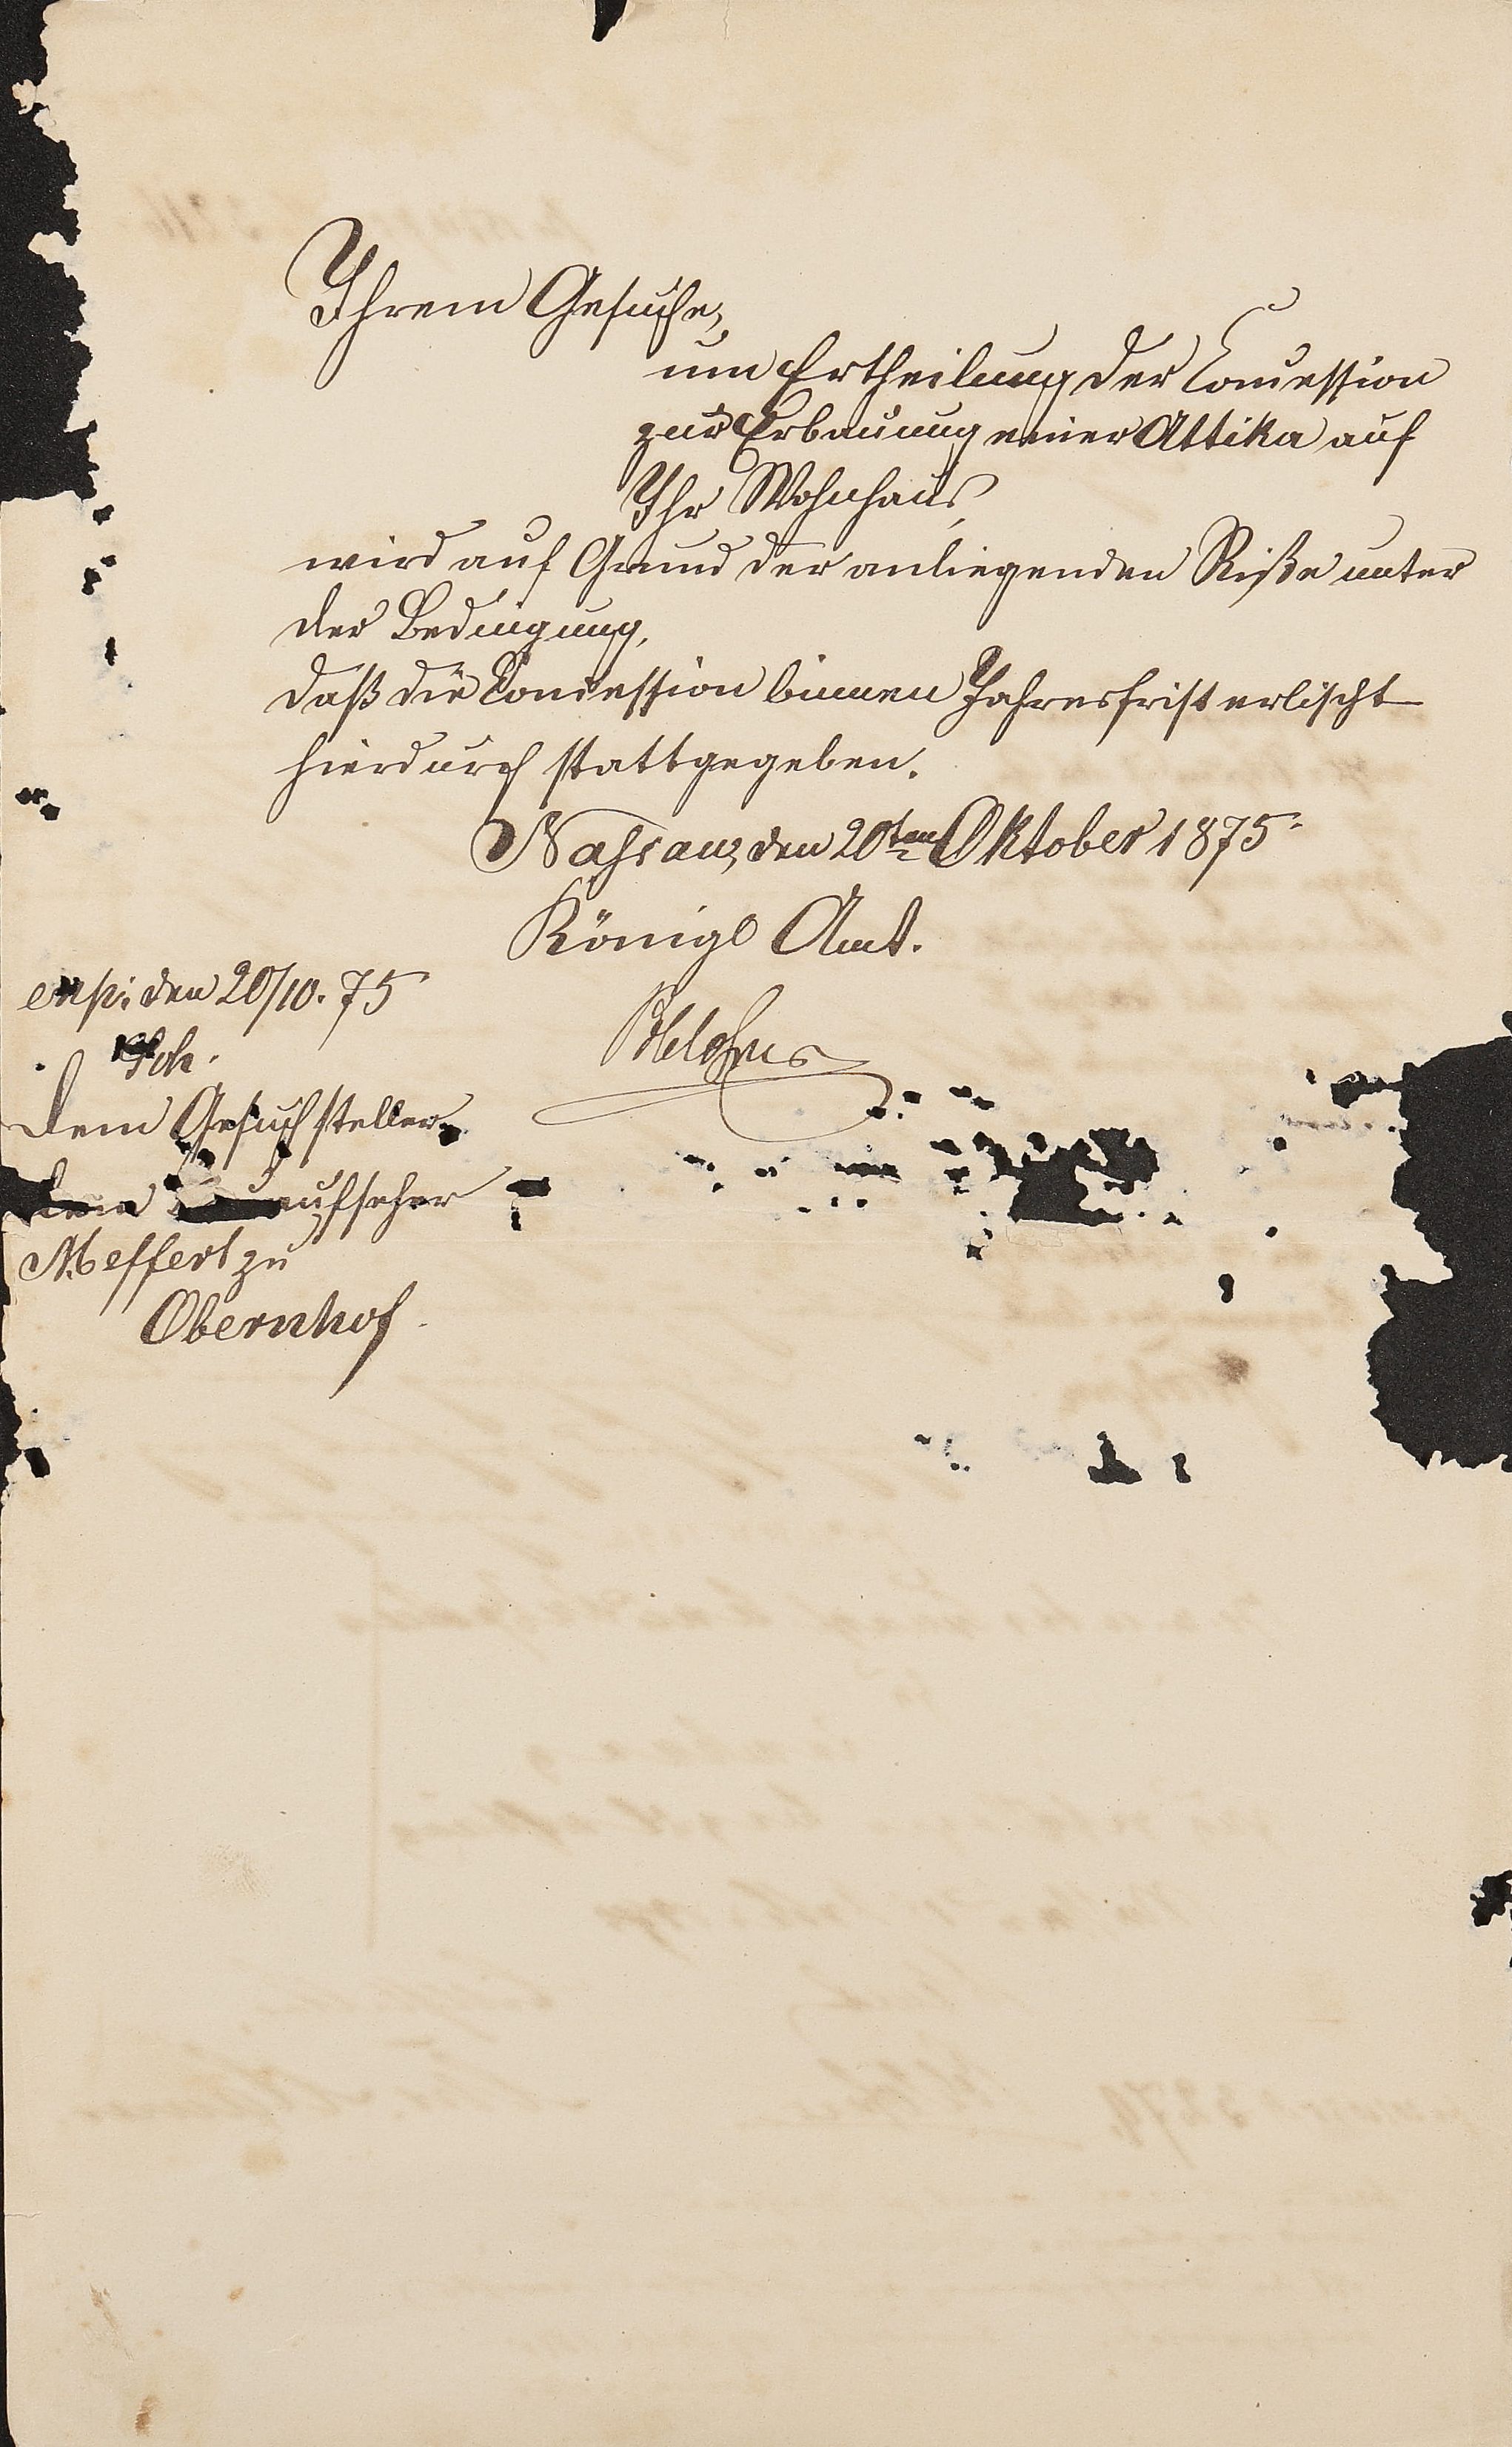 Ihrem Gesuche,
um Ertheilung der Concession
zur Erbauung einer Attika auf
Ihr Wohnhaus,
wird auf Grund der anliegenden Riße unter
der Bedingung,
daß die Concession binnen Jahresfrist erlischt
hierdurch stattgegeben.
Nassau, den 20ten Oktober 1875.
Königl Amt.
exp: den 20/10. 75
Dem Gesuchsteller,
dem aufseher
Meffert zu
Obernhof.